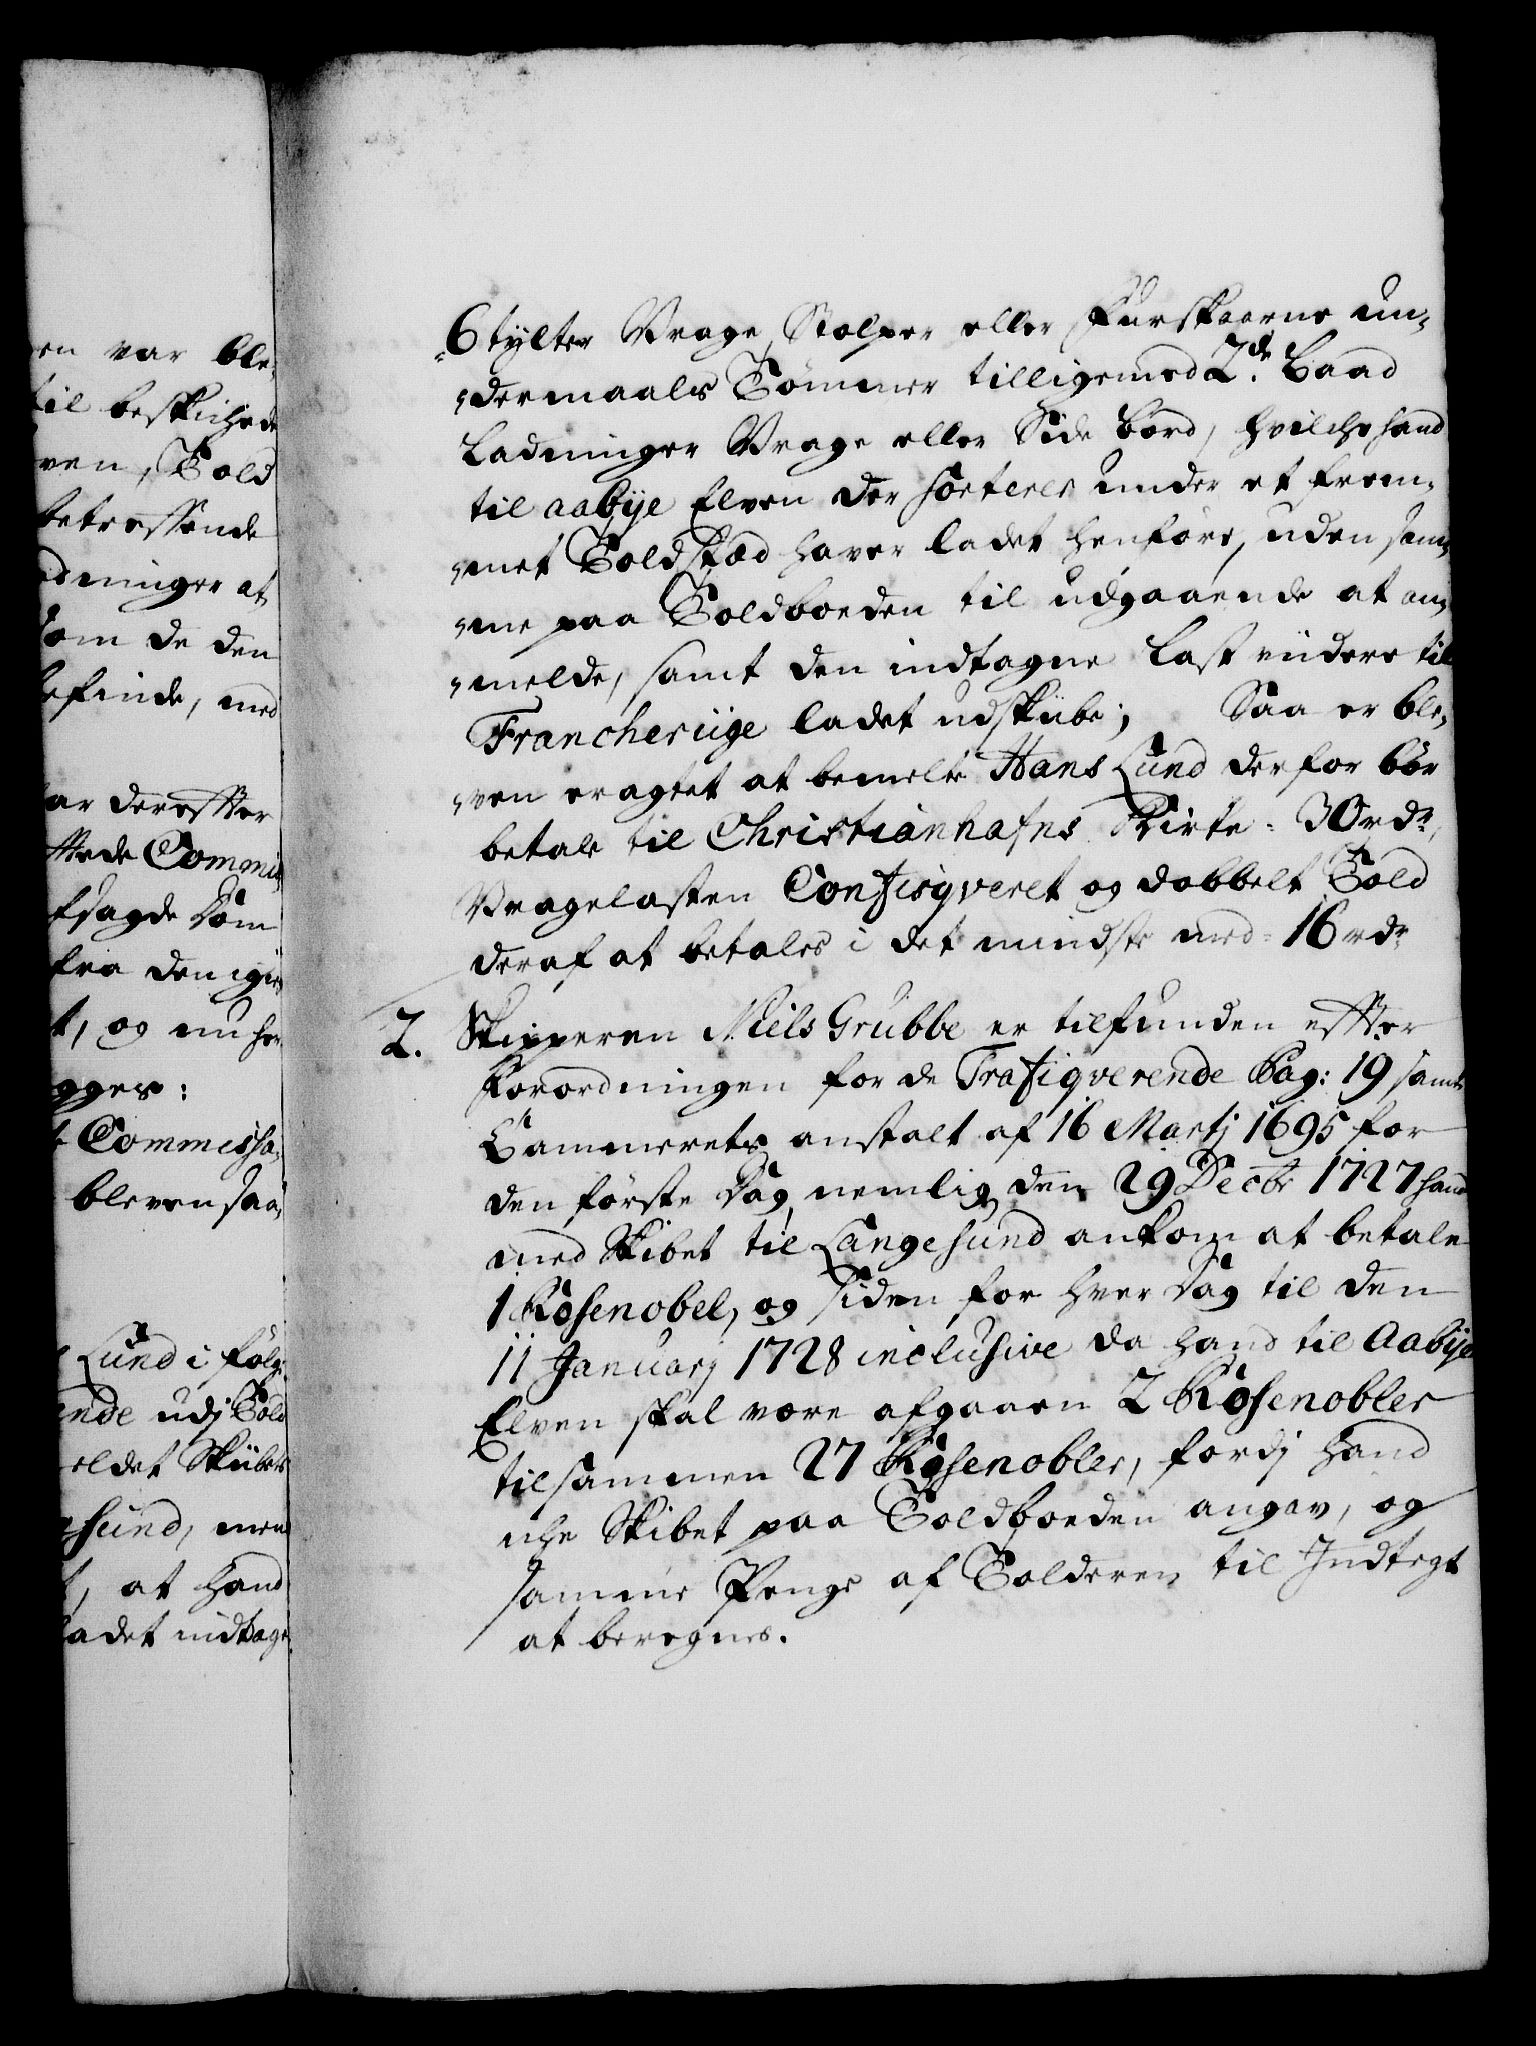 en var ble,
til beskichede
ven, Told
betreffende
dninger at
som de den
befinde, med
ar derefter
Commis,
fsagde Dom
fra den igien,
t, og nu her
gges:
Commissa,
bleven saa,
Lund i følg,
ende udj Told
eldet Skibets
esund, men
t, at hand
ladet indtage
6 tylter Vrage, Stolper eller Furskaarne un,
dermaals Tømmer tilligemed 2de Baad
Ladninger Vrage eller Side bord, hvilche hand
til aabye Elven der sorterer under et frem,
met Toldsted haver ladet henføre, uden sam,
me paa Toldboeden til udgaaende at an,
melde, samt den indtagne Last videre til
Francheriige ladet udskibe; Saa er ble,
ven eragtet at bemelte Hans Lund derfor bør
betale til Christianhafns Kirke = 30 rdr,
Vragelasten Confisqveret og dobbelt Told
deraf at betales i det mindste med = 16 rdr
2. Skipperen Niels Grubbe er tilfunden efter
Forordningen for de Trafiqverende Pag: 19 samt
Cammerets anstalt af 16 Martj 1695 for
den første Dag, nemlig den 29 Decbr 1727 hand
med Skibet til Langesund ankom at betale
1 Rosenobel, og siden for hver Dag til den
11 Januarj 1728 inclusive da hand til Aabye
Elven skal være afgaaen 2 Rosenobler
tilsammen 27 Rosenobler, fordj hand
iche Skibet paa Toldboeden angav, og
samme Penge af Tolderen til Indtegt
at beregnes.